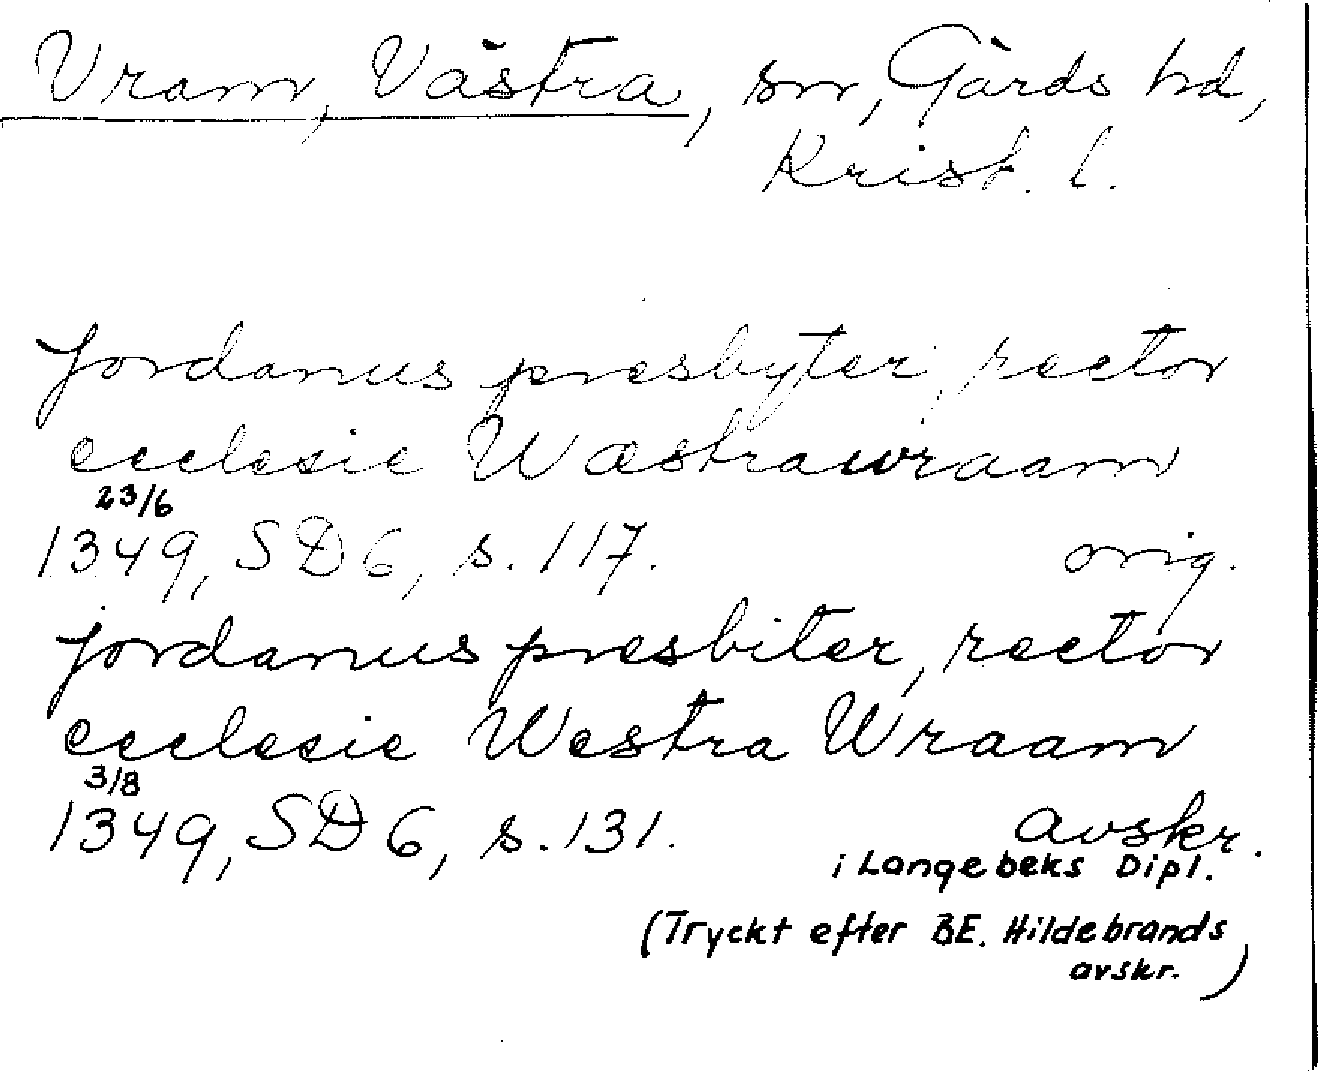 Vram, Västra, sn, Gärds hd,
Krist. l.
Jordanus presbyter, rector
ecclesie Wæstrawraam
23/6
1349, SD 6, s. 117. orig.
Jordanus presbiter, rector
ecclesie Westra Wraam
3/8
1349, SD 6, s. 131. avskr.
i Langebeks Dipl.
(Tryckt efter BE. Hildebrands
avskr. )